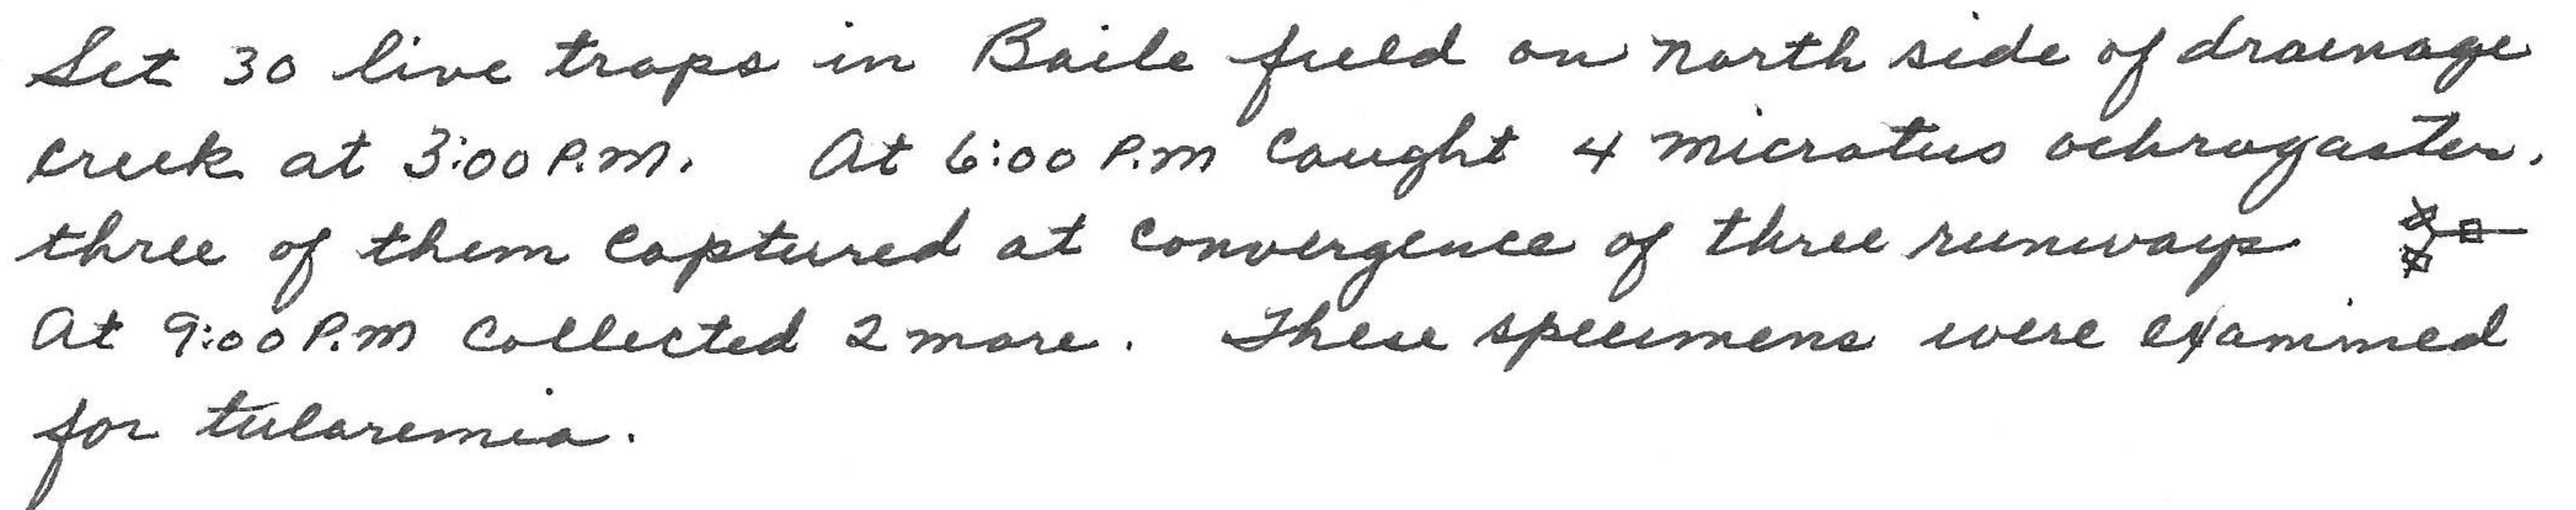 Set 30 live traps in Baile field on North side of drainage
creek at 3:00 P.M. At 6:00 P.M caught 4 Microtus ochrogaster.
three of them captured at convergence of three runways
At 9:00 P.M collected 2 more. These specimens were examined
for tularemia.